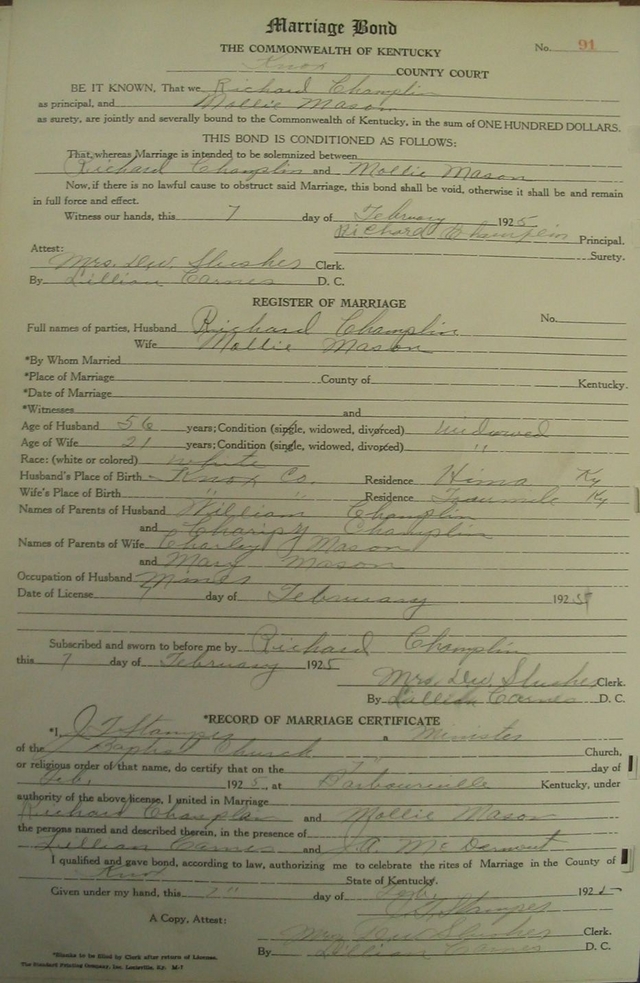 Marriage Bond
No. 91
THE COMMONWEALTH OF KENTUCKY
Knox COUNTY COURT
BE IT KNOWN, That we Richard Champlin
as principal, and Mollie Mason
as surety, are jointly and severally bound to the Commonwealth of Kentucky, in the sum of ONE HUNDRED DOLLARS.
THIS BOND IS CONDITIONED AS FOLLOWS:
That, whereas Marriage is intended to be solemnized between
Richard Champlin and Mollie Mason
Now, if there is no lawful cause to obstruct said Marriage, this bond shall be void, otherwise it shall be and remain
in full force and effect.
Witness our hands, this 7 day of February 1925
Richard Champlin Principal.
Surety.
Attest:
Mrs. Dw. Slusher Clerk.
By Lillian Carnes D. C.
REGISTER OF MARRIAGE
No.
Full names of parties, Husband Richard Champlin
Wife Mollie Mason
*By Whom Married
*Place of Marriage County of Kentucky.
*Date of Marriage
*Witnesses and
Age of Husband 56 years; Condition (single, widowed, divorced) widowed
Age of Wife 21 years; Condition (single, widowed, divorced) "
Race: (white or colored) white
Husband's Place of Birth Knox Co. Residence Hima Ky
Wife's Place of Birth " " Residence Ky
Names of Parents of Husband William Champlin
and Champlin
Names of Parents of Wife Charley J Mason
and Mary Mason
Occupation of Husband
Date of License 7 day of February 1925
Subscribed and sworn to before me by Richard Champlin
this 7 day of February 1925
Mrs. Dw Slusher Clerk.
By Lillian Carnes D. C.
*RECORD OF MARRIAGE CERTIFICATE
*I, J. T. Stamper a Minister
of the Baptist Church Church,
or religious order of that name, do certify that on the 7" day of
Feb. 1925, at Barbourville Kentucky, under
authority of the above license, I united in Marriage
Richard Champlin and Mollie Mason
the persons named and described therein, in the presence of
Lillian Carnes and J. A. McDermott
I qualified and gave bond, according to law, authorizing me to celebrate the rites of Marriage in the County of
Knox State of Kentucky.
Given under my hand, this 7" day of Feb. 192
J. T. Stamper
A Copy, Attest:
Mrs Dw Slusher Clerk.
By Lillian Carnes D. C.
*Blanks to be filled by Clerk after return of License.
The Standard Printing Company, Inc. Louisville, Ky. M-7